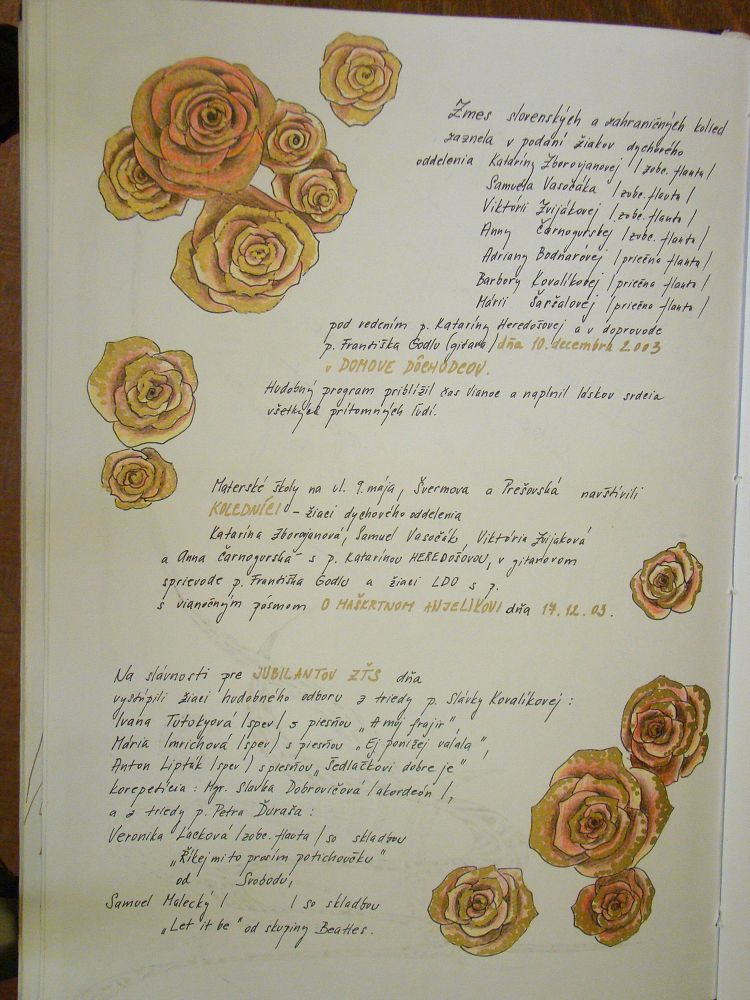 Zmes slovenských a zahraničných kolied
zaznela v podaní žiakov dychového
oddelenia Kataríny Zborovjanovej /zobc. flauta/
Samuela Vasočáka /zobc. flauta/
Viktórii Zvijákovej /zobc. flauta/
Anny Čarnogurskej /zobc. flauta/
Adriany Bodnárovej /priečna flauta/
Barbory Kovalíkovej /priečna flauta/
Márii Šaršalovej /priečna flauta/
pod vedením p. Kataríny Heredošovej a v doprovode
p. Františka Godlu (gitara) dňa 10. decembra 2003
v DOMOVE DÔCHODCOV.
Hudobný program priblížil čas Vianoc a naplnil láskou srdcia
všetkých prítomných ľudí.
Materské školy na ul. 9. mája, Švermova a Prešovská navštívili
KOLEDNÍCI - žiaci dychového oddelenia
Katarína Zborojanová, Samuel Vasočák, Viktória Zvijaková
a Anna Čarnogurská s p. Katarínou HEREDOŠOVOU, v gitarovom
sprievode p. Františka Godlu a žiaci LDO s p.
s vianočným pásmom O MAŠKRTNOM ANJELIKOVI dňa 17.12.03.
Na slávnosti pre JUBILANTOV ZŤS dňa
vystúpili žiaci hudobného odboru z triedy p. Slávky Kovalíkovej:
Ivana Tutokyová /spev/ s piesňou „A môj frajir",
Mária Imrichová /spev/ s piesňou „Ej ponižej valala",
Anton Lipták /spev/ s piesňou „Sedlačkovi dobre je"
korepetícia: Mgr. Slavka Dobrovičová /akordeón/,
a z triedy p. Petra Ďuraša:
Veronika Lacková /zobc. flauta/ so skladbou
„Říkej mi to prosím potichoučku"
od Svobodu,
Samuel Malecký / / so skladbou
„Let it be" od skupiny Beatles.